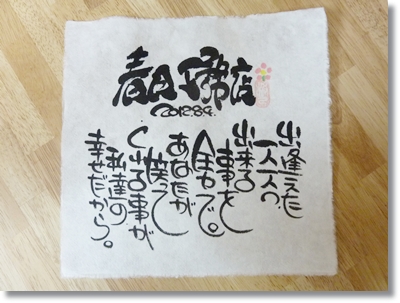 春日店
2012.8.9.
出逢えた
一人一人の
出来る
事を
全力で。
あなたが
笑って
くれる事が
私達の
幸せだから。